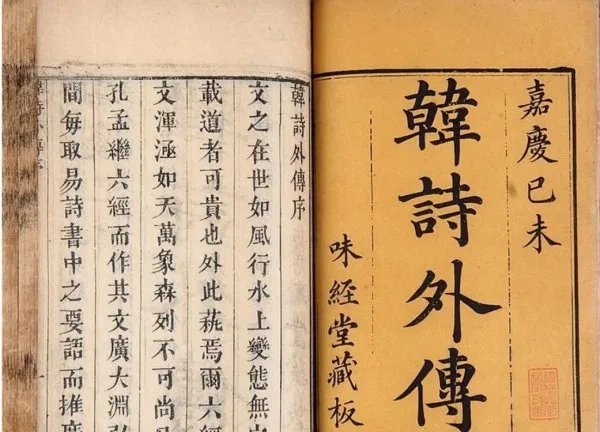 嘉慶己未
韓詩外傳
味經堂藏板
韓詩外傳序
文之在世如風行水上變態無
載道者可貴也外此蓺焉爾六經
文渾涵如天萬象森列不可尚
孔孟繼六經而作其文廣大淵
間每取易詩書中之要語而推